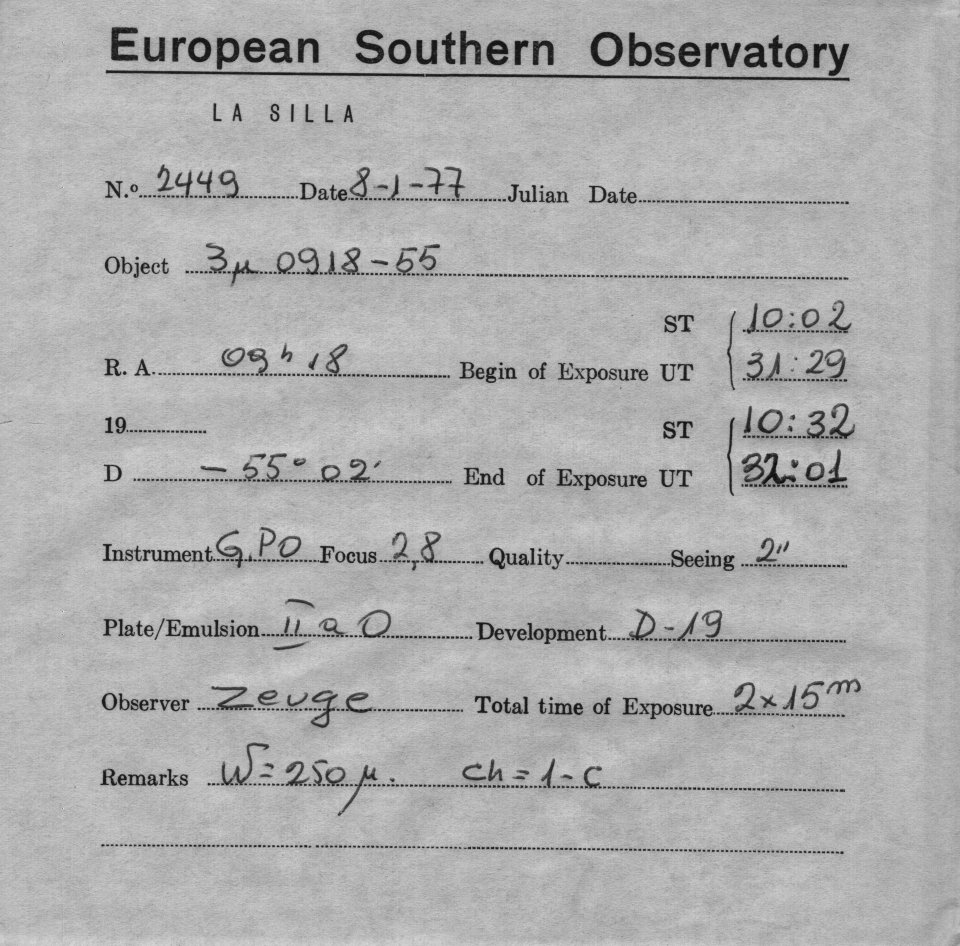 European Southern Observatory
LA SILLA
N.º 2449 Date 8-1-77 Julian Date
Object 3µ 0918-55
ST 10:02
R. A. 09h 18 Begin of Exposure UT 31:29
19 ST 10:32
D - 55° 02' End of Exposure UT 32:01
Instrument G.PO Focus 2,8 Quality Seeing 2"
Plate/Emulsion II a O Development D-19
Observer Zeuge Total time of Exposure 2x15m
Remarks W=250µ. Ch=1-C